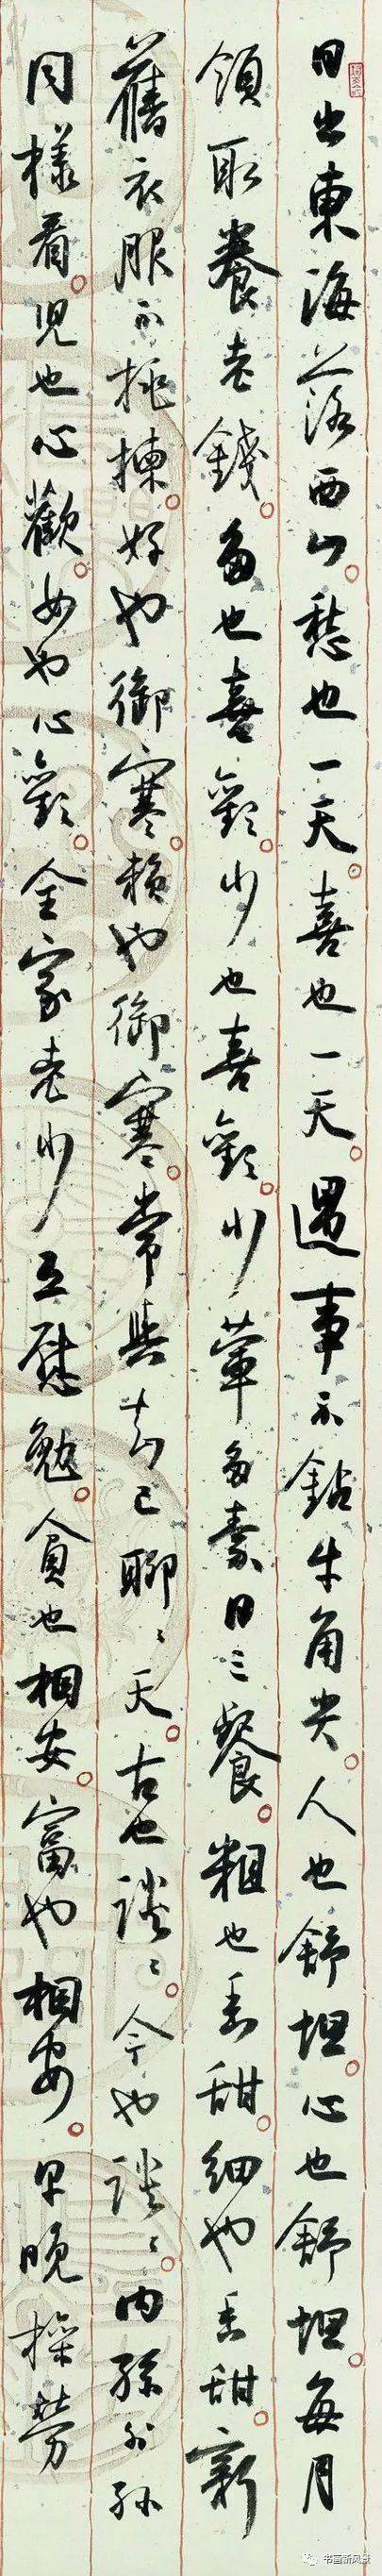 日出東海落西山。愁也一天。喜也一天。遇事不鈷牛角尖。人也舒坦。心也舒坦。每月
領取養老錢。多也喜歡。少也喜歡。少葷多素日三餐。粗也香甜。細也香甜。新
舊衣服不挑揀。好也御寒。賴也御寒。常與知己聊〻天。古也談〻。今也談〻。内孫外孫
同樣看。兒也心歡。女也心歡。全家老少互慰勉。貪也相安。富也相安。早晚操勞
书画新风景